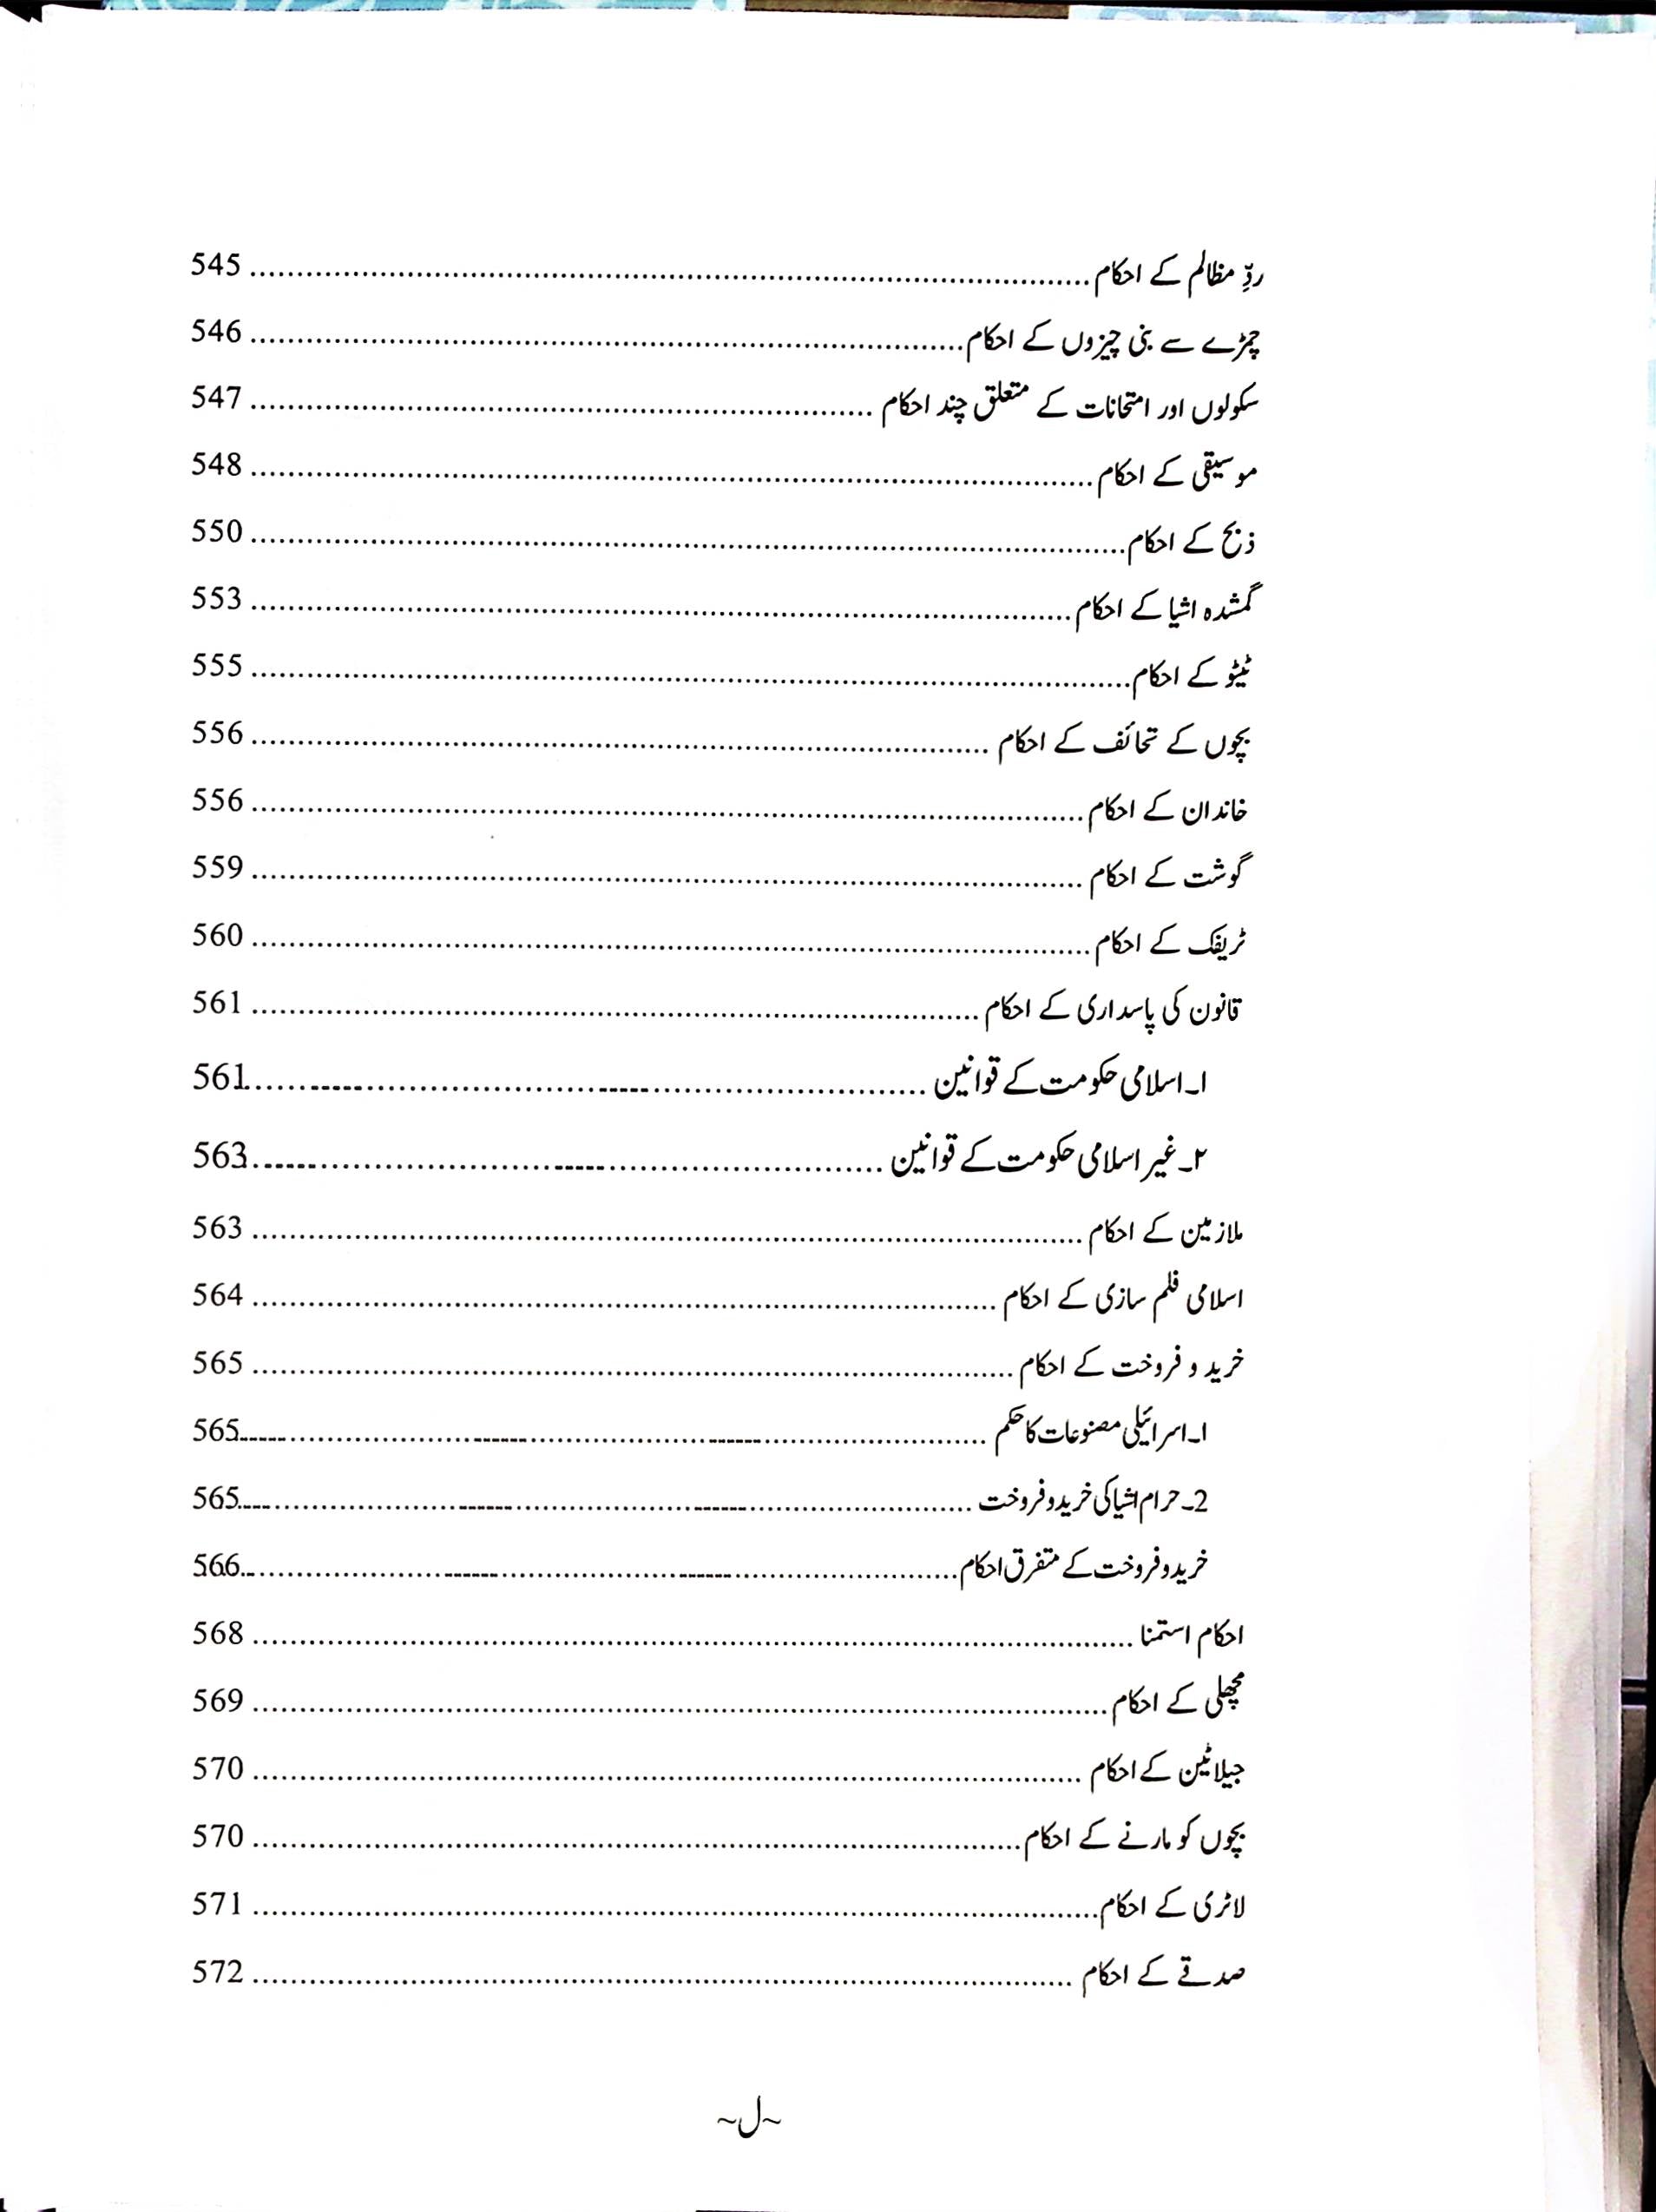 ردِّ مظالم کے احکام ........ 545
چمڑے سے بنی چیزوں کے احکام ........ 546
سکولوں اور امتحانات کے متعلق چند احکام ........ 547
موسیقی کے احکام ........ 548
ذبح کے احکام ........ 550
گمشدہ اشیا کے احکام ........ 553
ٹیٹو کے احکام ........ 555
بچوں کے تحائف کے احکام ........ 556
خاندان کے احکام ........ 556
گوشت کے احکام ........ 559
ٹریفک کے احکام ........ 560
قانون کی پاسداری کے احکام ........ 561
۱۔ اسلامی حکومت کے قوانین ........ 561
۲۔ غیر اسلامی حکومت کے قوانین ........ 563
ملازمین کے احکام ........ 563
اسلامی فلم سازی کے احکام ........ 564
خرید و فروخت کے احکام ........ 565
۱۔ اسرائیلی مصنوعات کا حکم ........ 565
2۔ حرام اشیا کی خرید و فروخت ........ 565
خرید و فروخت کے متفرق احکام ........ 566
احکام استمنا ........ 568
مچھلی کے احکام ........ 569
جیلاٹین کے احکام ........ 570
بچوں کو مارنے کے احکام ........ 570
لاٹری کے احکام ........ 571
صدقے کے احکام ........ 572
~ل~